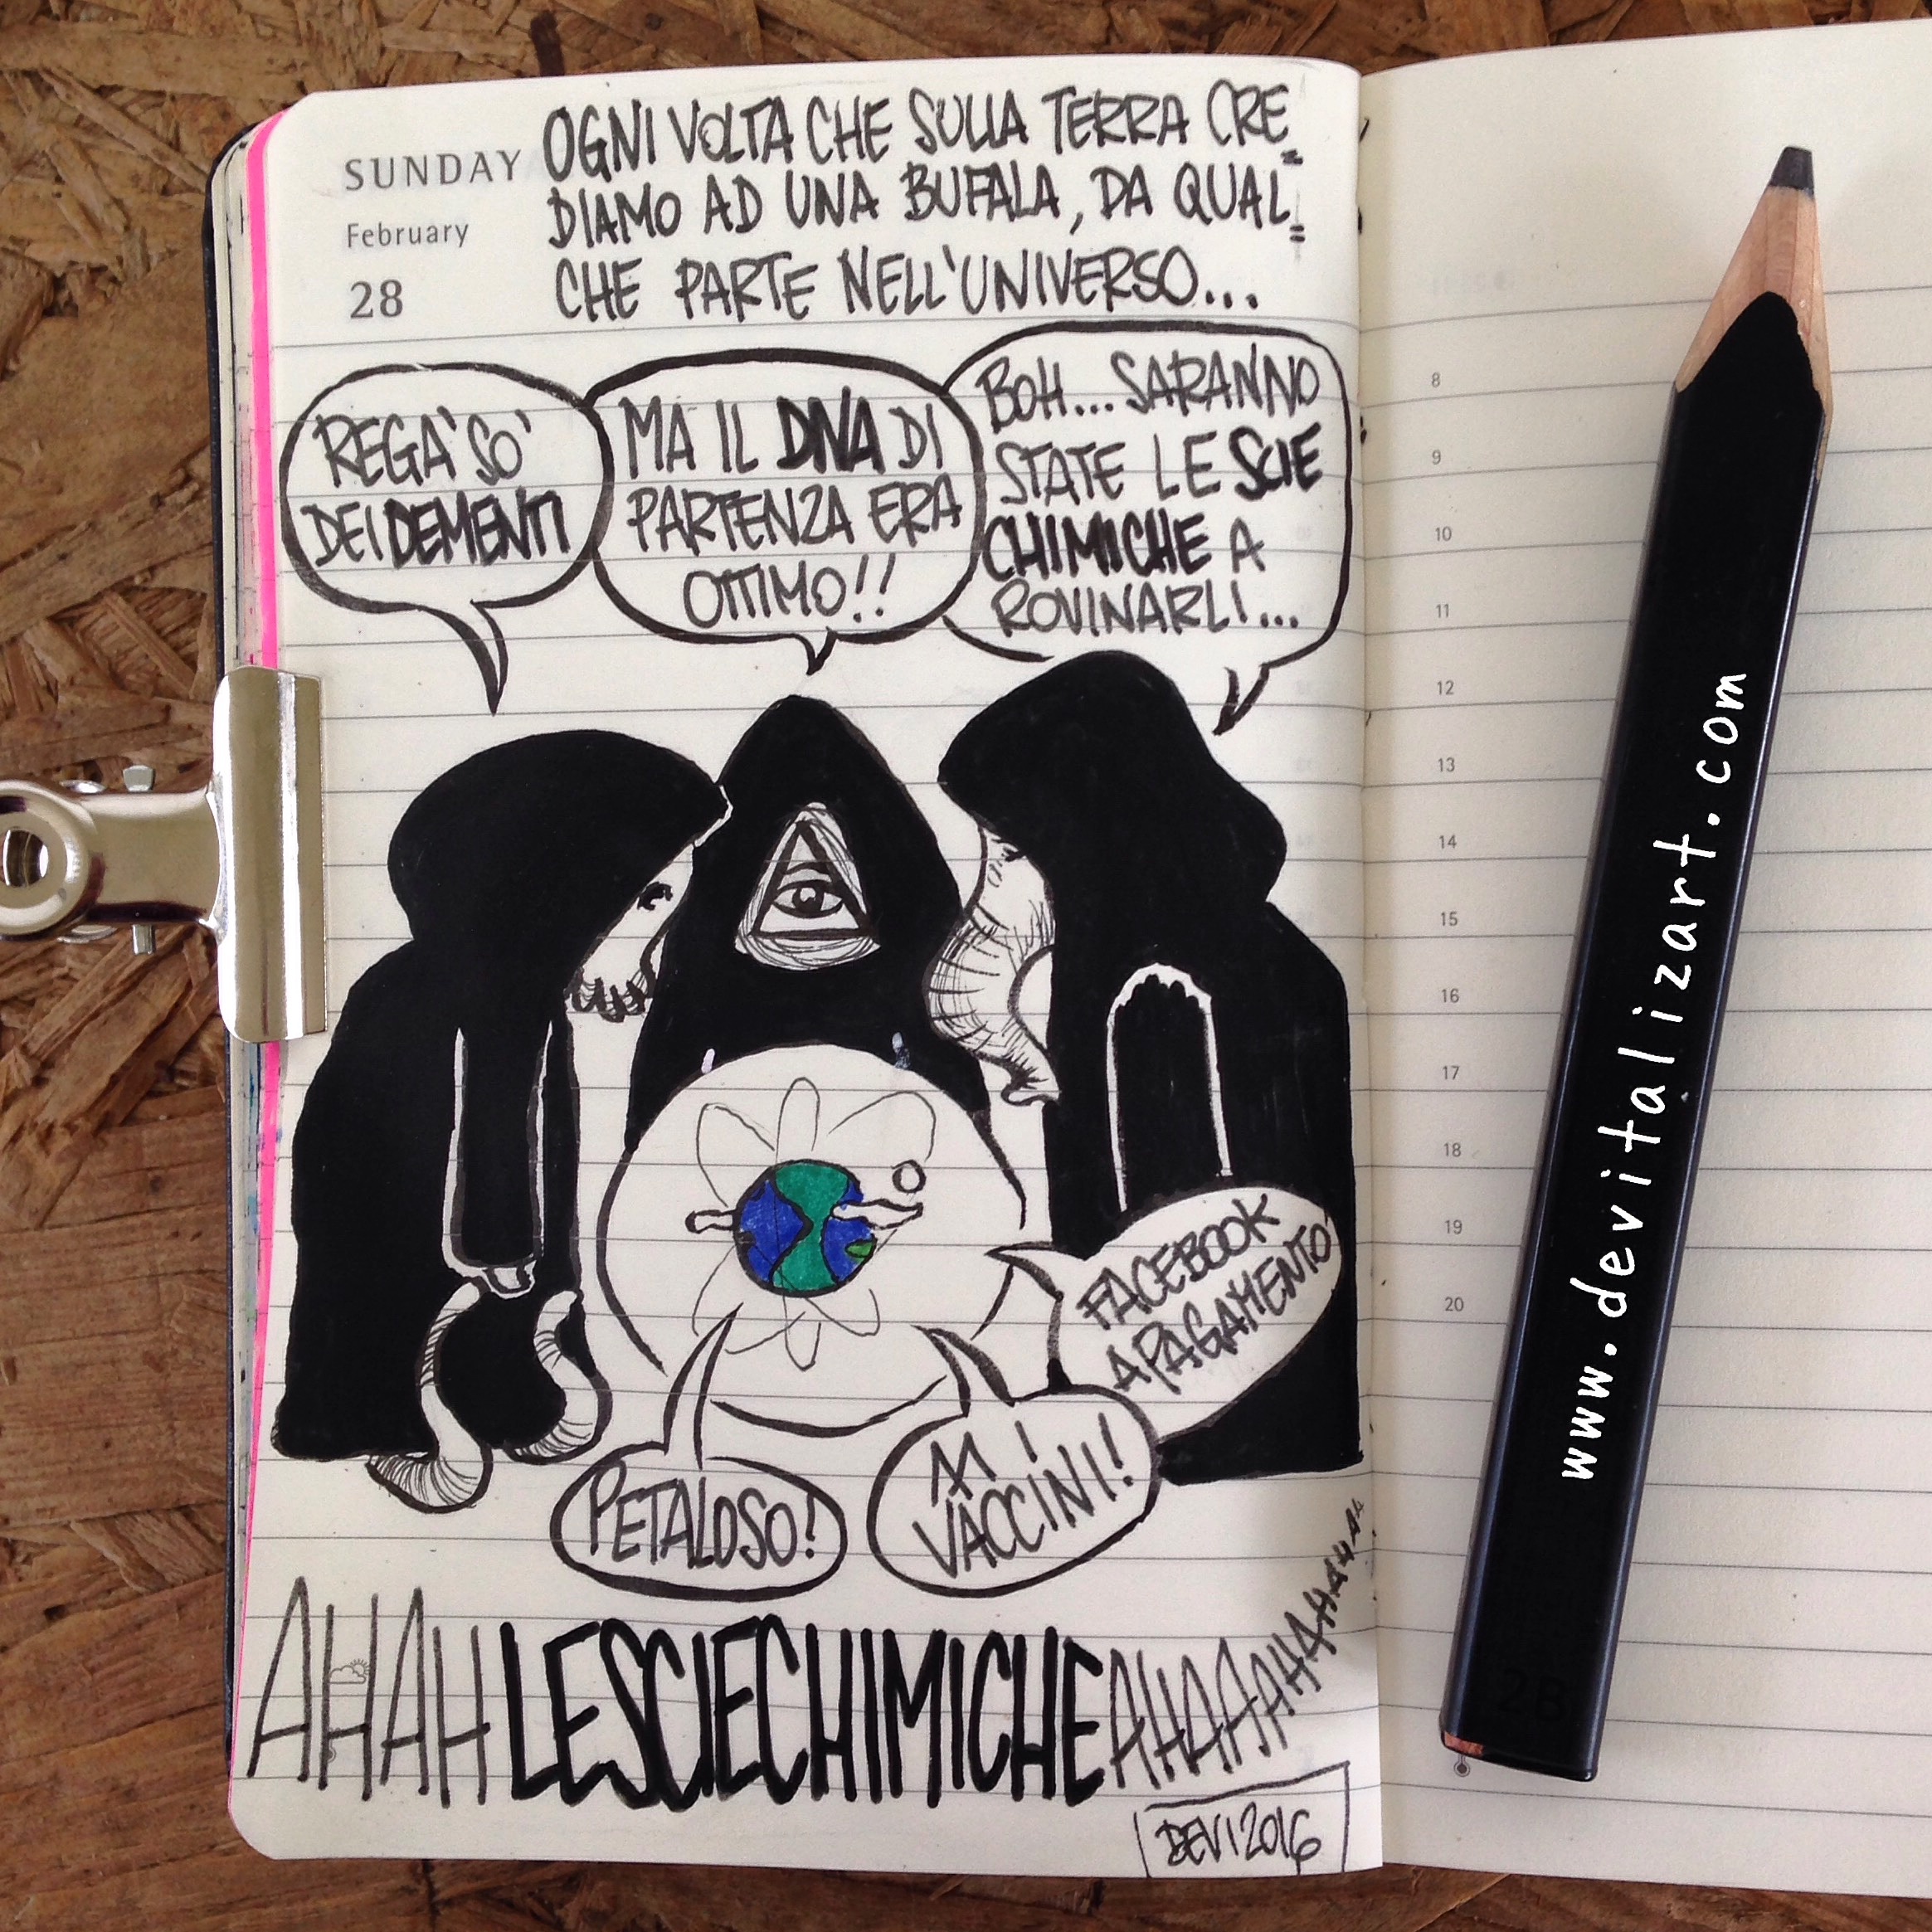 SUNDAY
February
28
OGNI VOLTA CHE SULLA TERRA CRE=
DIAMO AD UNA BUFALA, DA QUAL=
CHE PARTE NELL'UNIVERSO...
REGA' SO'
DEI DEMENTI
MA IL DNA DI
PARTENZA ERA
OTTIMO!!
BOH... SARANNO
STATE LE SCIE
CHIMICHE A
ROVINARLI...
FACEBOOK
A PAGAMENTO
PETALOSO!
AA I
VACCINI!
AHAH LESCIECHIMICHE AHAAAAHAHAHAHAA
DEVI 2016
8
9
10
11
12
13
14
15
16
17
18
19
20
www.devitalizart.com
2B